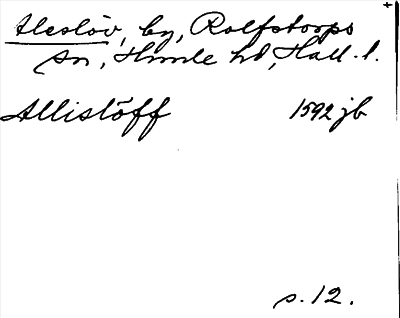 Alesløv, by, Rolfstorps
sn, Himle hd, Hall. l.
Allislöff 1592 jb
s. 12.